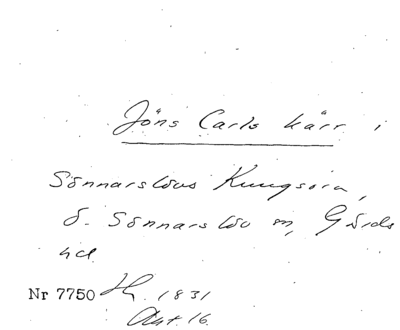 Jöns Carls kärr i
Sönnarslövs Kungsöra,
ö. Sönnarslöv sn, Gärds
hd
Nr 7750 1831
Akt. 16.